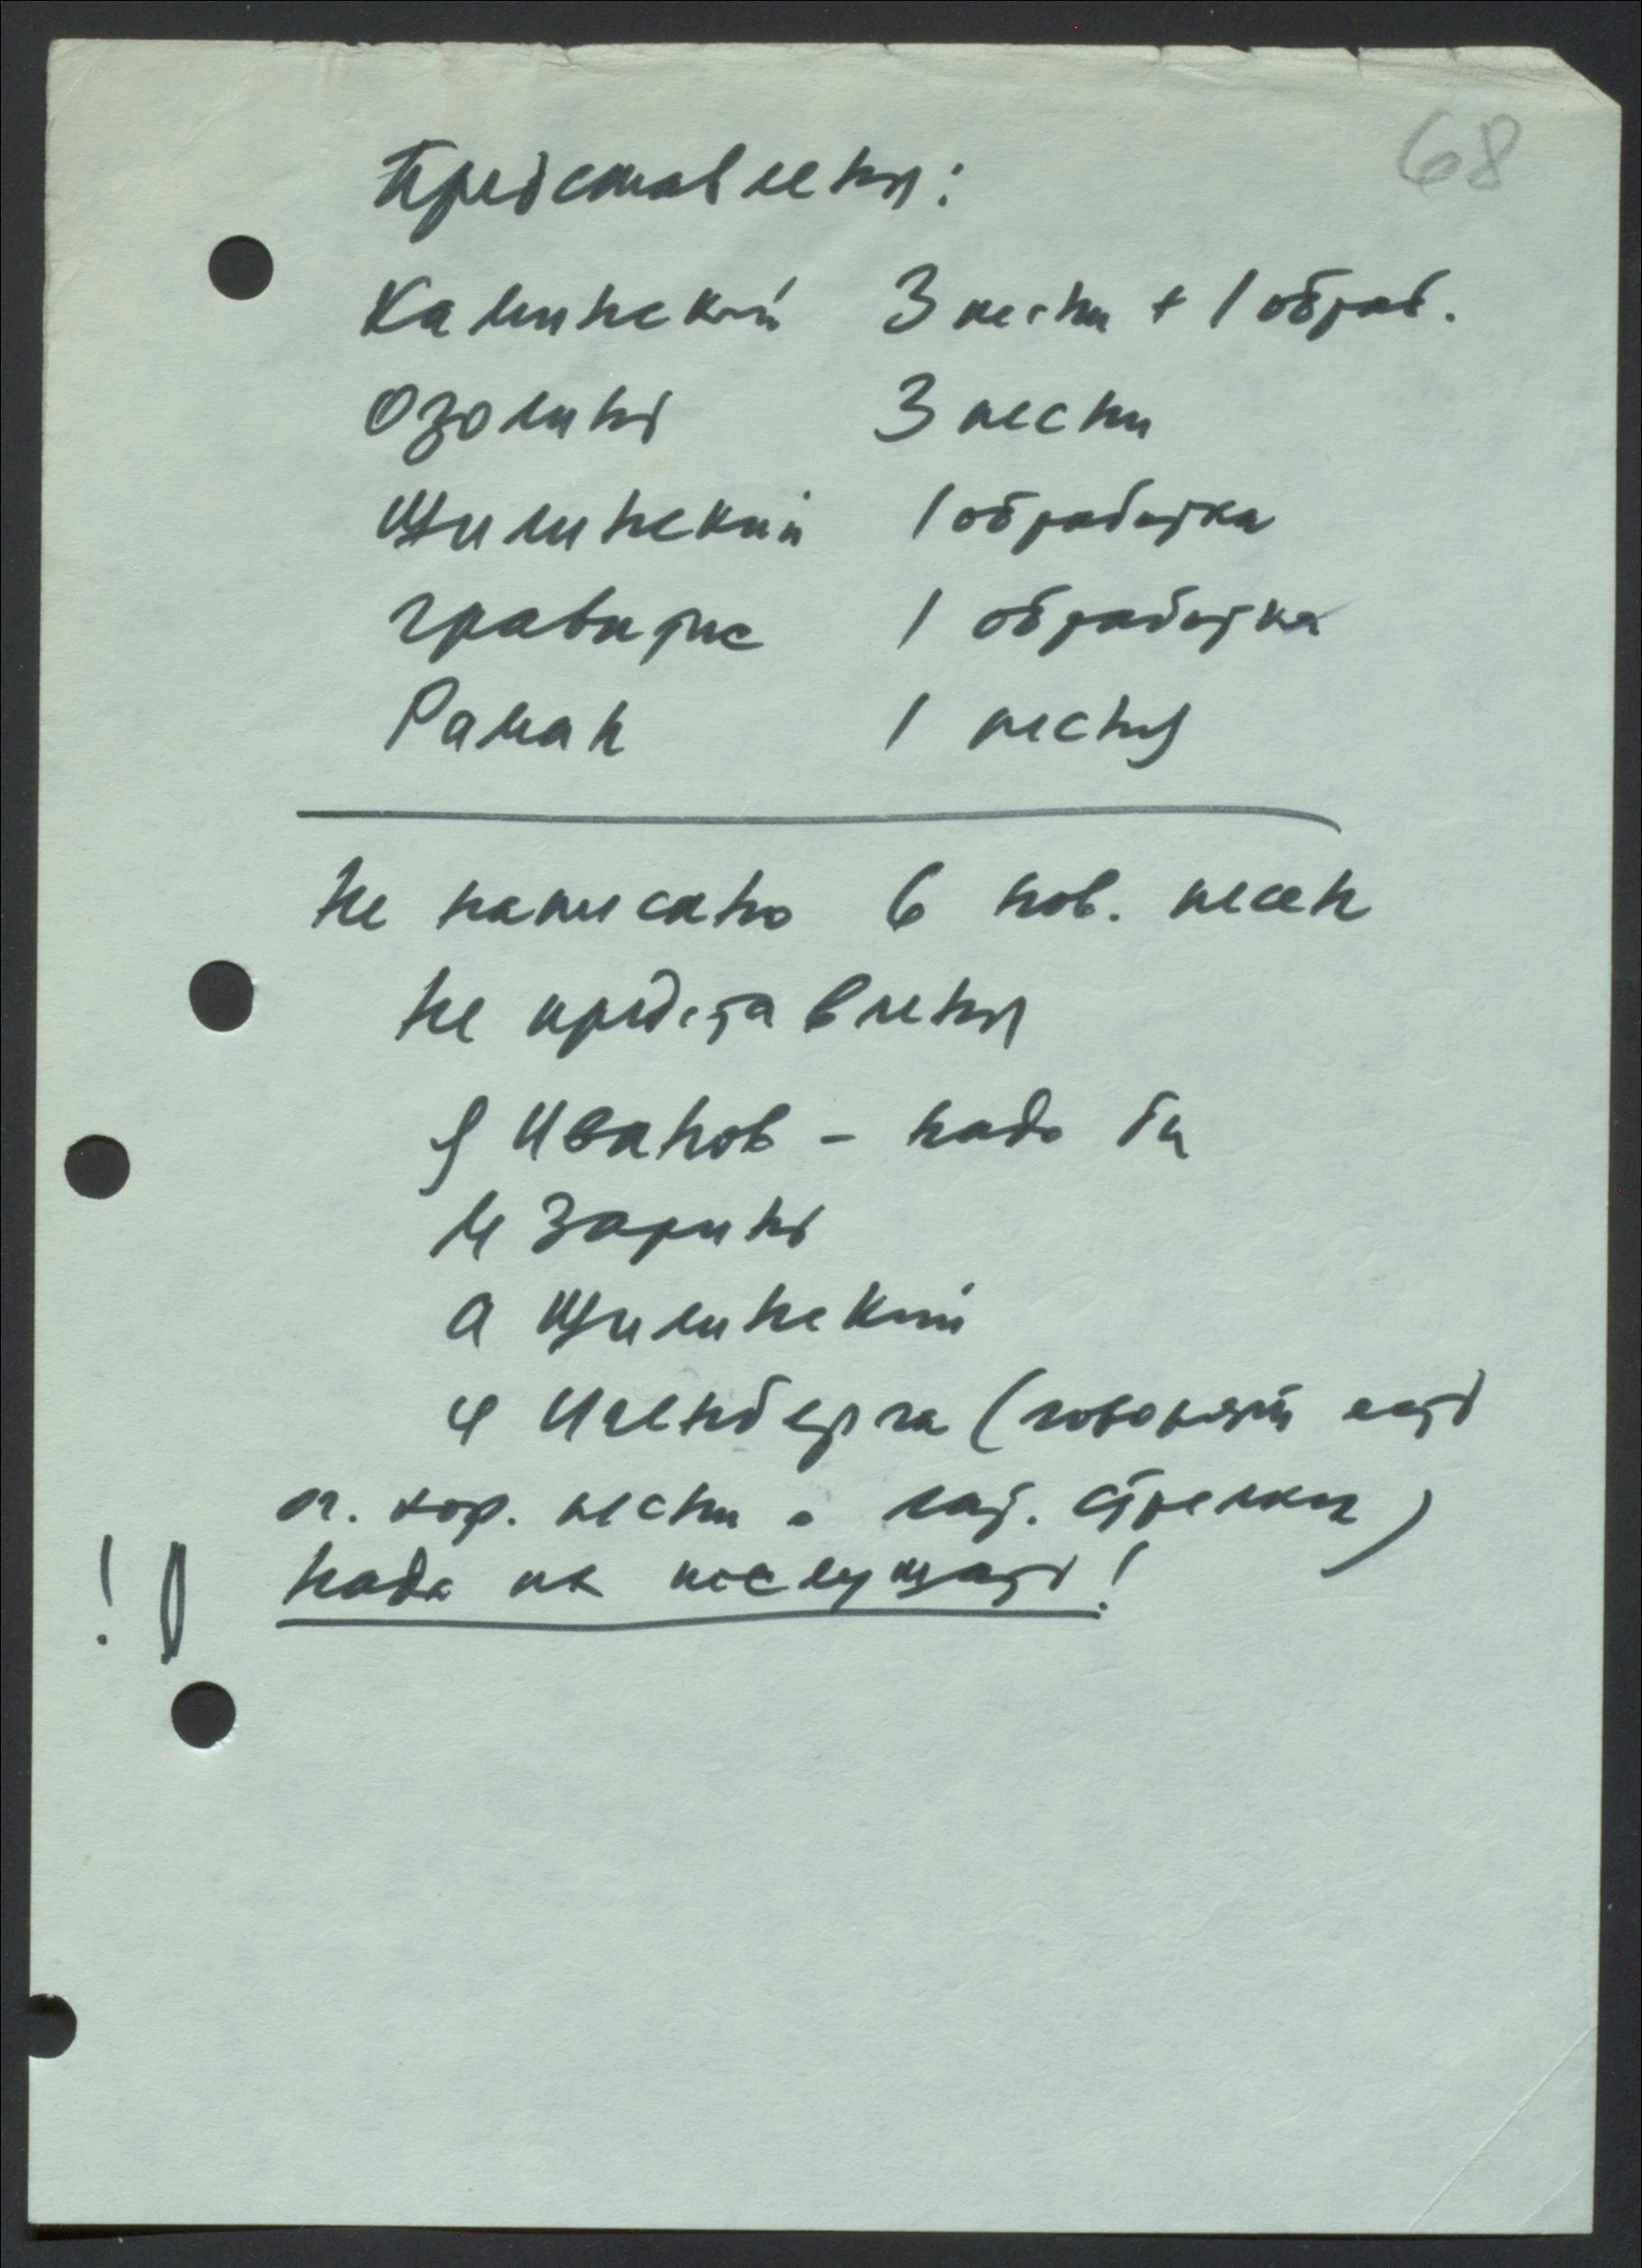 68
Представлены:
Калинский 3 песни + 1 обраб.
Озолинь 3 песни
Жилинский 1 обработка
Гравитис 1 обработка
Раман 1 песня
Не написано 6 нов. песен
Не представлены
Я Иванов – надо бы
М Заринь
А Жилинский
И Исенберга (говорят есть
оч. хор. песни о лат. стрелках)
! надо их послушать!